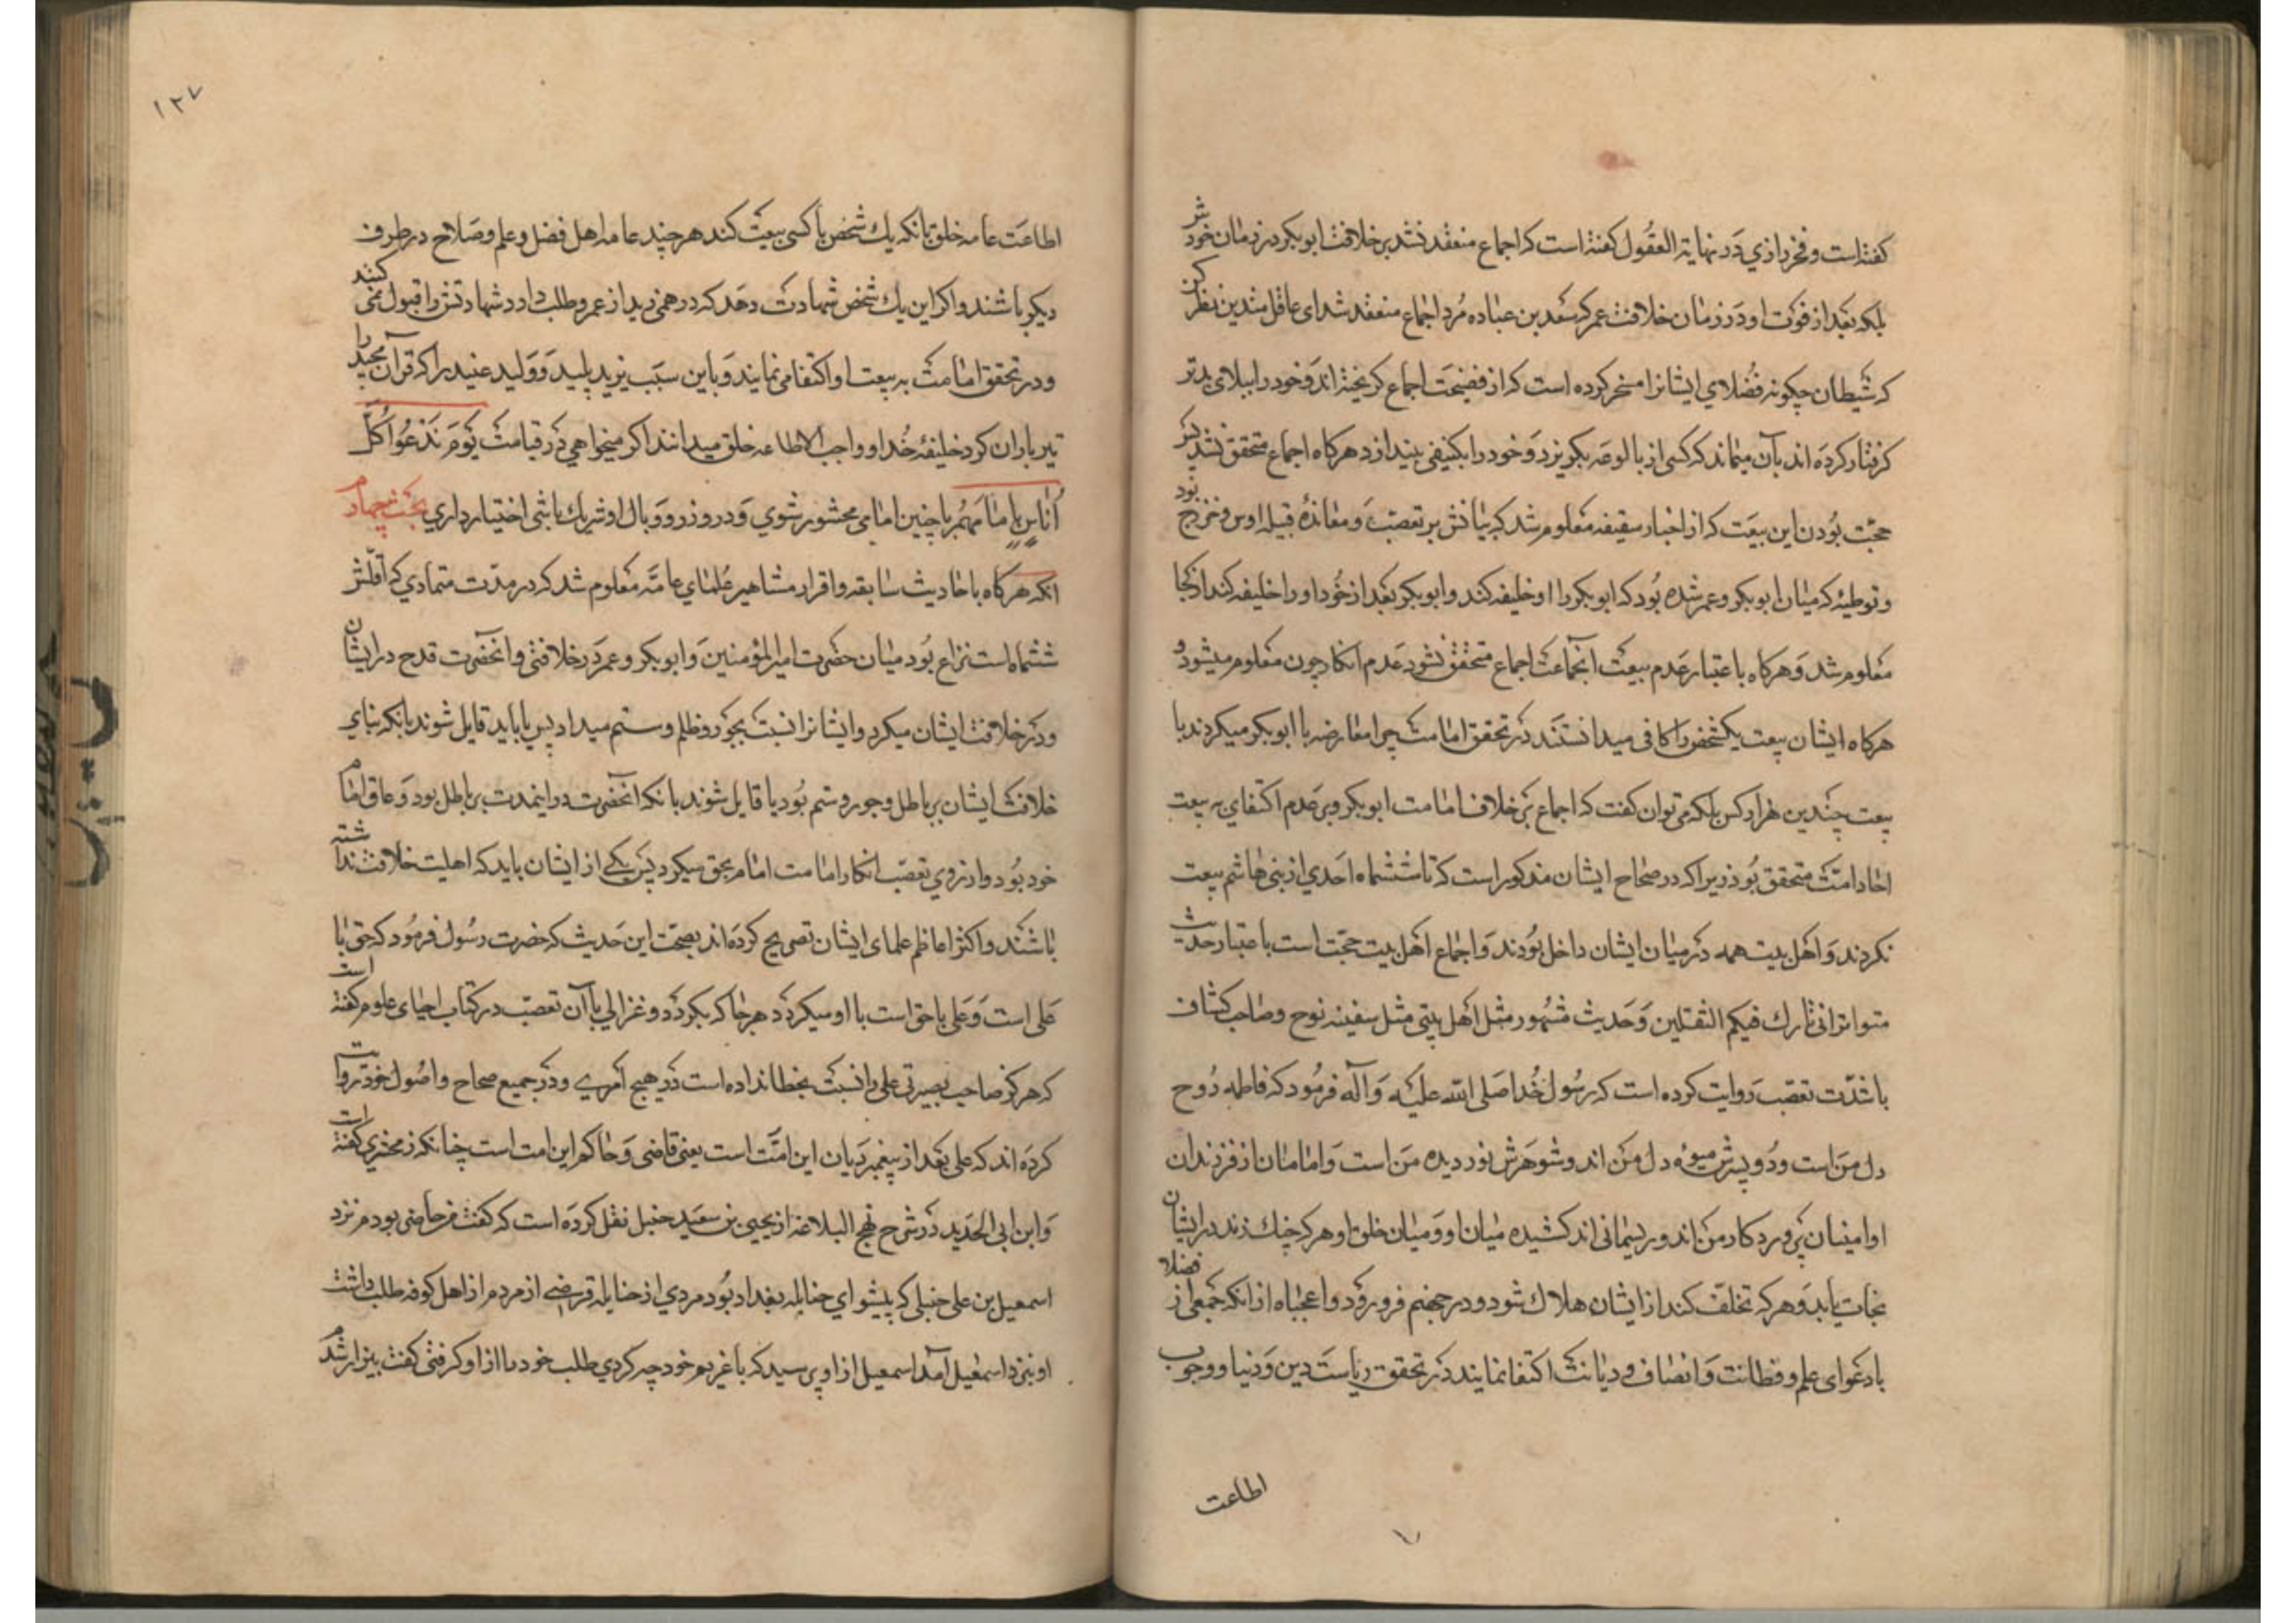 گفته‌است و فخر رازي در نهایة العقول گفته است که اجماع منعقد نشد بر خلافت ابوبکر در زمان خودش
بلکه بعد از فوت او در زمان خلافت عمر که سعد بن عباده مرد اجماع منعقد شد ای عاقل متدین نظر کن
که شیطان چگونه فضلاي ایشانرا مسخر کرده است که از فضیحت اجماع گریخته‌اند و خود را ببلای بدتر
گرفتار کرده اند بآن میماند که کسی از بالوعه بگریزد و خود را بکنیفی بیندازد هرگاه اجماع متحقق نشد پس
حجت بودن این بیعت که از اخبار سقیفه معلوم شد که بنانش بر تعصب و معانده قبیله اوس و خزرج بود
و توطیه که میان ابوبکر و عمر شده بود که ابوبکر را او خلیفه کند و ابوبکر بعد از خود او را خلیفه کند از کجا
معلوم شد و هرگاه باعتبار عدم بیعت آنجماعت اجماع متحقق نشود عدم انکار چون معلوم میشود و
هرگاه ایشان بیعت یکشخص را کافی میدانستند در تحقق امامت چرا معارضه با ابوبکر میکردند با
بیعت چندین هزار کس بلکه می توان گفت که اجماع بر خلاف امامت ابوبکر و بر عدم اکتفای به بیعت
احاد امت متحقق بود زیرا که در صحاح ایشان مذکور است که تا ششماه احدي از بنی هاشم بیعت
نکردند و اهل بیت همه در میان ایشان داخل بودند و اجماع اهل بیت حجت است باعتبار حدیث
متواتر انی تارك فیکم الثقلین و حدیث مشهور مثل اهل بیتی مثل سفینه نوح و صاحب کشاف
با شدت تعصب روایت کرده است که رسول خدا صلی الله علیه و آله فرمود که فاطمه روح
دل من است و دو پسرش میوه دل من اند و شوهرش نور دیده من است و امامان از فرزندان
او امینان پروردگار من اند و ریسمانی اند کشیده میان او و میان خلق او هر که چنك زند در ایشان
نجات یابد و هر که تخلف کند از ایشان هلاك شود و در جهنم فرو رود و اعجباه از انکه جمعی از فضلا
با دعوای علم و فطانت و انصاف و دیانت اکتفا نمایند در تحقق ریاست دین و دنیا و وجوب
اطاعت
۱۲۷
اطاعت عامه خلق بانکه یك شخص با کسی بیعت کند هر چند عامه اهل فضل و علم و صلاح در طرف
دیگر باشند و اگر این یك شخص شهادت دهد که درهمی زید از عمرو طلب دارد شهادتش را قبول نمی کنند
و در تحقق امامت به بیعت او اکتفا می نمایند و باین سبب یزید پلید و ولید عنید را که قرآن مجید را
تیر باران کرد خلیفه خدا و واجب الاطاعه خلق میدانند اگر میخواهي در قیامت یوم ندعوا كل
أناس بإمامهم با چنین امامی محشور شوي و در وزر و وبال او شریك باشی اختیار داري بحث چهارم
انکه هرگاه باحادیث سابقه و اقرار مشاهیر علماي عامه معلوم شد که در مدت متمادي که اقلش
ششماه است نزاع بود میان حضرت امیر المؤمنین و ابوبکر و عمر در خلافتی و انحضرت قدح در ایشان
و در خلافت ایشان میکرد و ایشانرا نسبت بجور و ظلم و ستم میداد پس یا باید قایل شوند بانکه بنای
خلافت ایشان بر باطل و جور و ستم بود یا قایل شوند بانکه انحضرت در اینمدت بر باطل بود و عاق امام
خود بود و از روي تعصب انکار امامت امام بحق میکرد پس یکے از ایشان باید که اهلیت خلافت نداشته
باشند و اکثر اعاظم علمای ایشان تصریح کرده‌اند بصحت این حدیث که حضرت رسول فرمود که حق با
علی است و علی با حق است با او میگردد هر جا که بگردد و غزالي با آن تعصب در کتاب احیای علوم گفته است
که هرگز صاحب بصیرتی علی را نسبت بخطا نداده است در هیچ امری و در جمیع صحاح و اصول خود روایت
کرده اند که علی بعد از پیغمبر دیان این امت است یعنی قاضی و حاکم این امت است چنانکه زمخشري گفته است
و ابن ابی الحدید در شرح نهج البلاغه از یحیی بن سعید حنبل نقل کرده است که گفت من حاضر بودم نزد
اسمعیل بن علی حنبلی که پیشواي حنابله بغداد بود مردي از حنابله قرضے از مردم از اهل کوفه طلب داشت
او بنزد اسمعیل آمد اسمعیل از او پرسید که با غریم خود چه کردي طلب خود را از او گرفتی گفت بیزار شدم